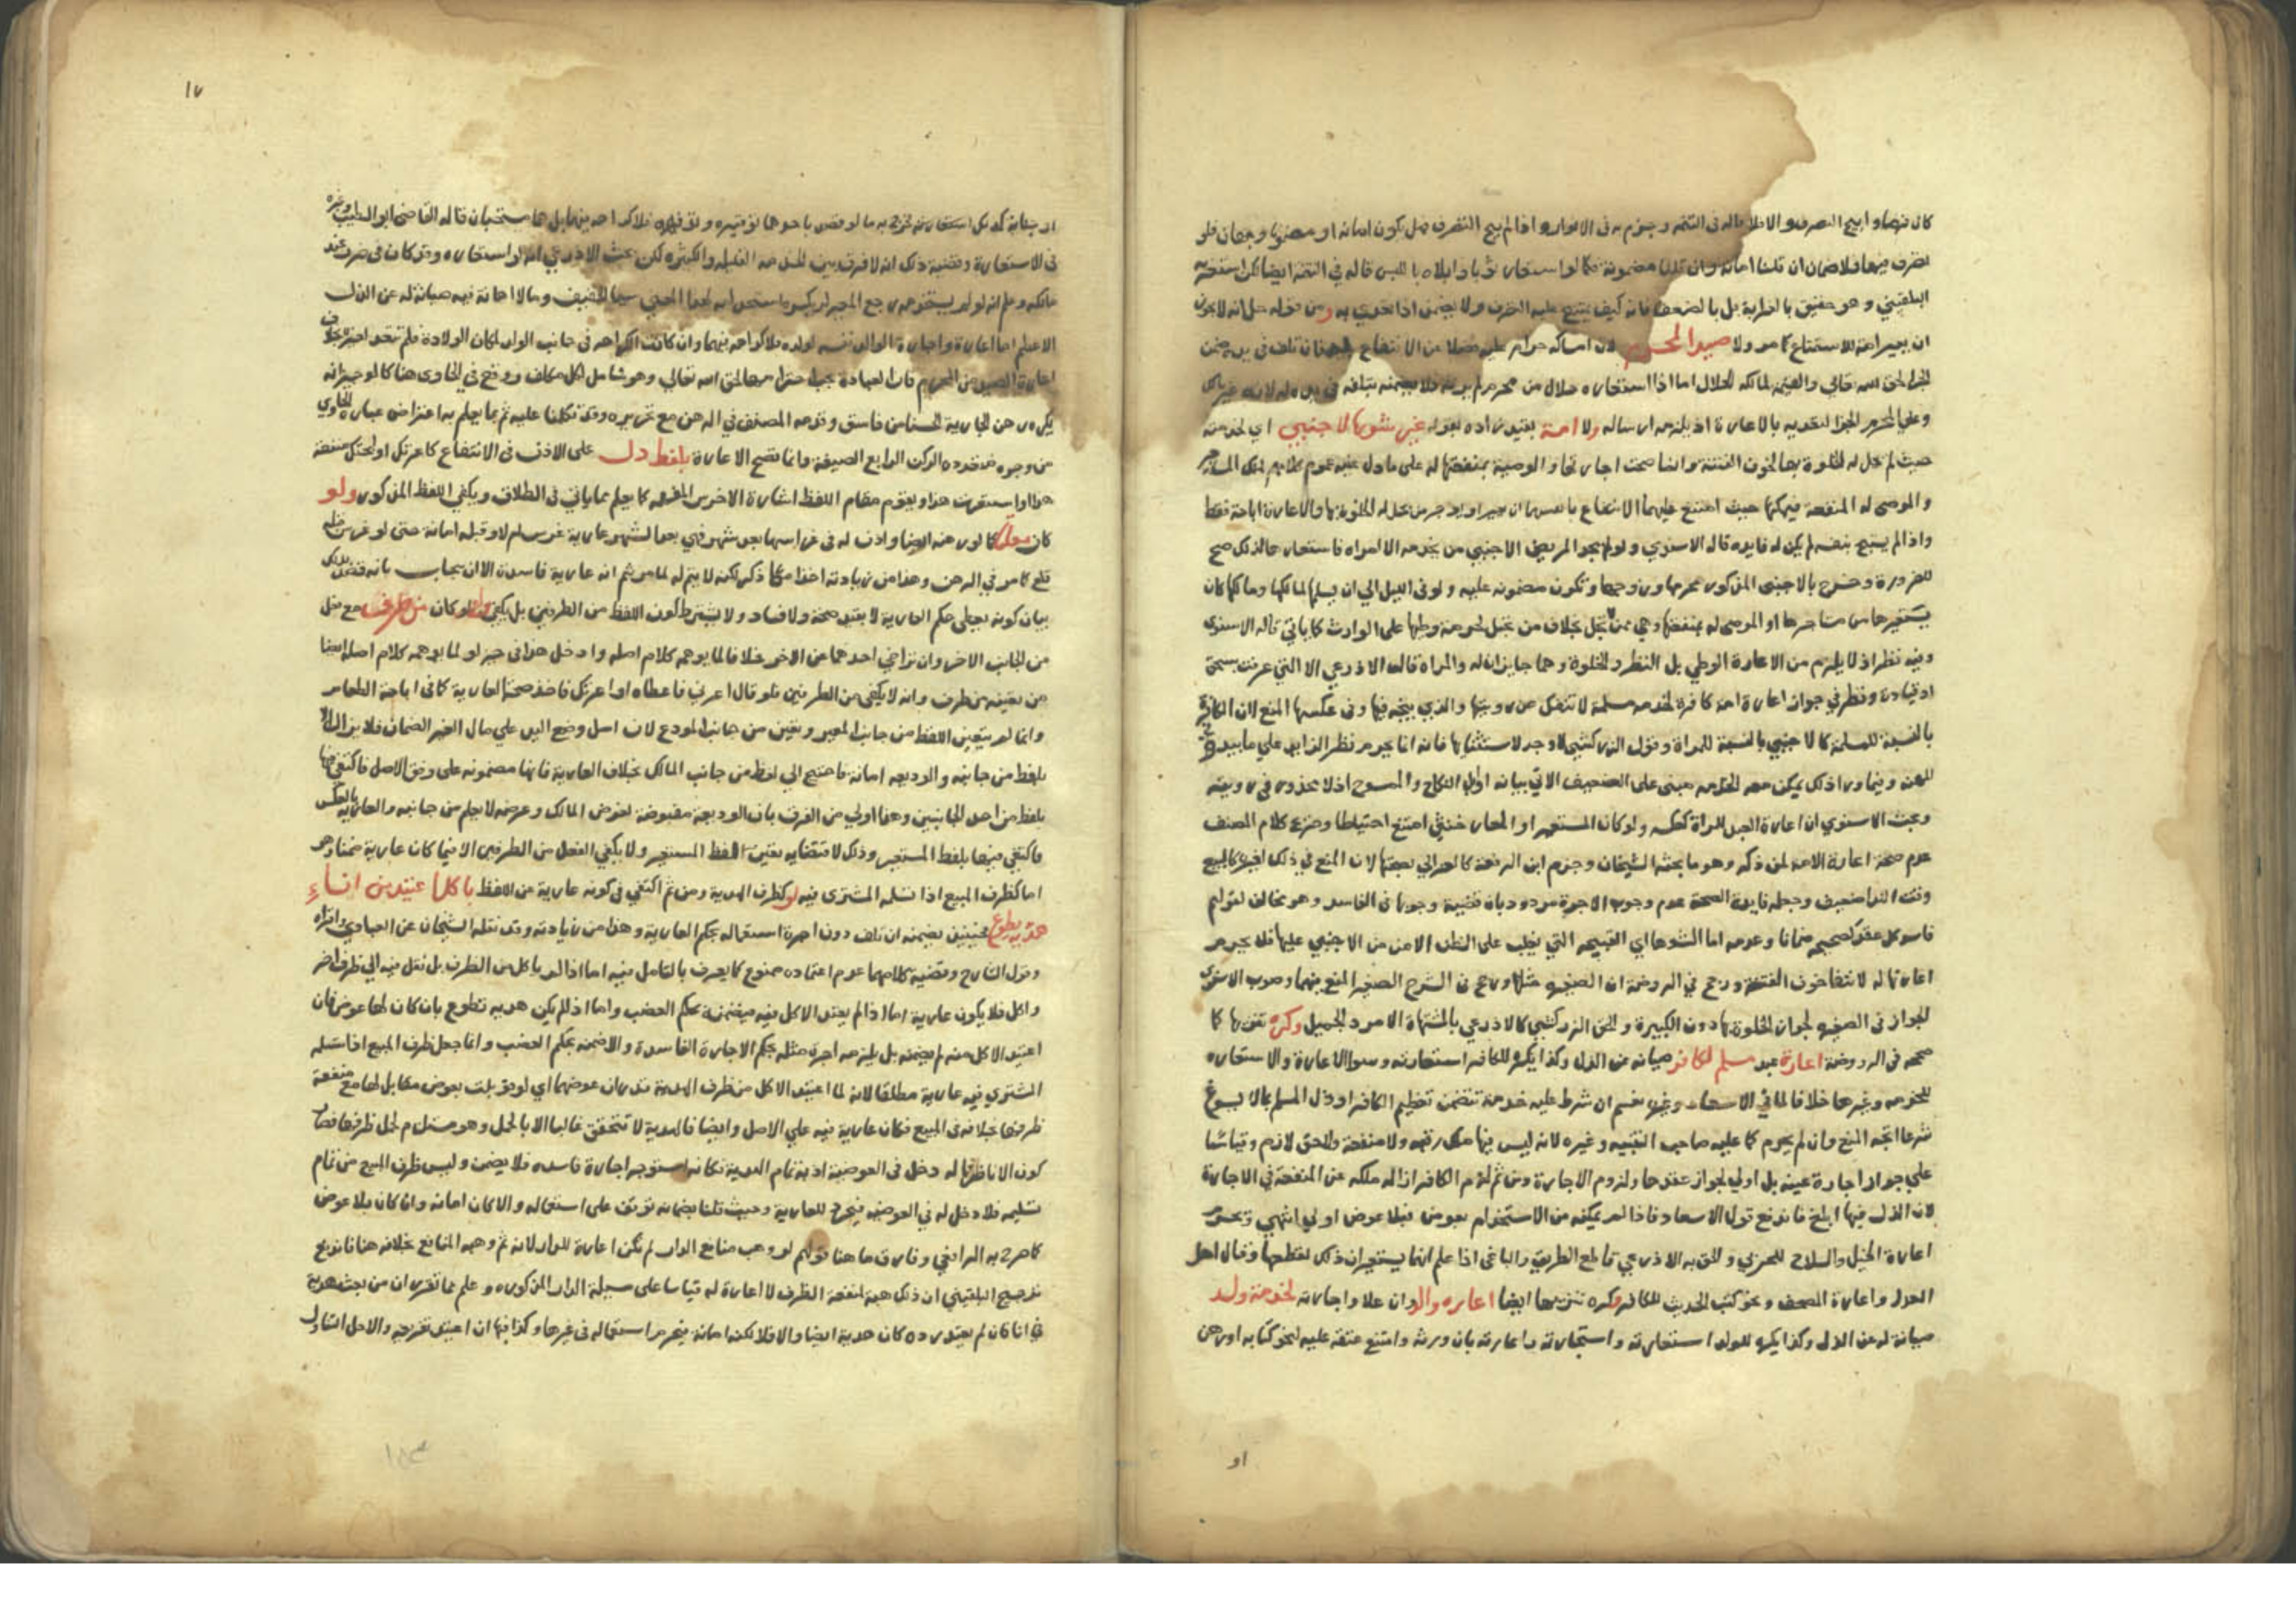 كان فيها وابيح التصرف والا فلا قاله في التتمه وجزم به في الانوار واذا لم يبح التصرف هل يكون امانة او مضمونا وجهان فلو
تصرف فيها فلا ضمان ان قلنا امانة وان قلنا مضمونة فكما لو استعار ثوبا وابلاه باللبس قاله في التتمة ايضا لكن
البلقيني وهو حقيق بالغرابة بل بالضعف فانه كيف يمتنع عليه التصرف ولا يضمن اذا تعدى به ومن قوله حل انه لا يجوز
ان يعير امة للاستمتاع كما مر ولا صيدا لمحرم لان امساكه حرام عليه فضلا عن الانتفاع به فان تلف في يده ضمن
الجزا لحق الله تعالى والقيمة لمالكه الحلال اما اذا استعاره حلال من محرم لم يرسله فلا يضمنه بتلفه في يده له لانه غير مالك
وعلى المحرم الجزا لتعديه بالاعارة اذ يلزمه ارساله ولا امة بقيد زاده بقوله غير شوها لاجنبي اي لخدمته
حيث لم تحل له الخلوة بها لخوف الفتنة وانما صحت اجارتها والوصية بمنفعتها له على ما دل عليه عموم كلامهم لملك المستاجر
والموصى له المنفعة فيمكنها حيث امتنع عليهما الانتفاع بانفسهما ان يعير او يؤجر من يحل له الخلوة بها والاعارة اباحة فقط
واذا لم يستبح بنفسه لم يكن له فايدة قاله الاسنوي ولو لم يجد المريض الاجنبي من يخدمه الا امراة فاستعار حالذلك صح
للضرورة وخرج بالاجنبي المذكور محرمها وزوجها وتكون مضمونة عليه ولو في الليل الى ان يسلمها لمالكها ومالكها كان
يستعيرها من مستاجرها او الموصى له بمنفعتها وهي ممن تحبل بخلاف من تحبل لحرمة وطيها على الوارث كما ياتي قاله الاسنوي
وفيه نظر اذ لا يلزم من الاعارة الوطي بل النظر والخلوة وهما جايزان له والمراة قاله الاذرعي الا التي عرفت بسحق
او قيادة ونظر في جواز اعارة امة كافرة لخدمة مسلمة لا تنفك عن رويتها والذي يتجه فيها وفي عكسها المنع لان الكافرة
بالنسبة للمسلمة كالاجنبي بالنسبة للمراة وقول الزركشي لا وجه لاستثنايها فانه انما يحرم نظر الزايد على ما يبدو في
المهنة وفيما ورا ذلك يمكن معه الخدمة مبني على الضعيف الاتي بيانه اول النكاح والممسوح اذ لا محذور في رويته
وبحث الاسنوي ان اعارة العبد للمراة كعكسه ولو كان المستعير او المعار خنثى امتنع احتياطا وصريح كلام المصنف
عدم صحة اعارة الامة لمن ذكر وهو ما بحثه الشيخان وجزم ابن الرفعة كالغزالي بصحتها لان المنع في ذلك لغيره كالبيع
وقت الندا ضعيف وجعله فايدة الصحة عدم وجوب الاجرة مردود بان قضيته وجوبها في الفاسد وهو مخالف لقولهم
فاسد كل عقد كصحيحه ضمانا وعدمه اما الشوها اي القبيحة التي يغلب على الظن الامن من الاجنبي عليها فلا يحرم
اعارتها له لانتفا خوف الفتنة ورجح في الروضة ان الصغيرة مثلها ورجح في الشرح الصغير المنع فيهما وصوب الاسنوي
الجواز في الصغيرة لجواز الخلوة بها دون الكبيرة والحق الزركشي كالاذرعي بالمشتهاة الامرد الجميل وكره تنزيها كما
صححه في الروضة اعارة عبد مسلم لكافر صيانة عن الذل وكذا يكره للكافر استعارته وسوا الاعارة والاستعارة
للخدمة وغيرها خلافا لما في الاسعاد وغيره نعم ان شرط عليه خدمة تتضمن تعظيم الكافر او ذل المسلم بما لا يسوغ
شرعا اتجه المنع وان لم يحرم كما عليه صاحب التنبيه وغيره لانه ليس فيها ملك رقبة ولا منفعة ولا حق لازم وقياسا
على جواز اجارة عينه بل اولى لجواز عقدها ولزوم الاجارة ومن ثم لزم الكافر ازالة ملكه عن المنفعة في الاجارة
لان الذل فيها ابلغ فاندفع قول الاسعاد فاذا لم يمكنه من الاستخدام بعوض فبلا عوض اولى انتهى وتحرم
اعارة الخيل والسلاح للحربي والحق به الاذرعي قاطع الطريق والباغي اذا علم انهما يستعيران ذلك لقطعها وقتال اهل
العدل واعارة المصحف ونحو كتب الحديث للكافر وكره تنزيها ايضا اعارة والد وان علا واجارته لخدمة ولد
صيانة له عن الذل وكذا يكره للولد استعارته واستيجارته واعارته بان ورثه وامتنع عتقه عليه لنحو كتابة او رهن
او
١٧
او جناية كذلك استعارته نحو به ما لو قصد باحدهما توقيره وترفيهه فلا كراهة فيها بل هما مستحبان قاله القاضي ابو الطيب وغيره
في الاستعارة وقضية ذلك انه لا فرق بين الخدمة القليلة والكثيرة لكن بحث الاذرعي انه لو استعاره وقد كان في ضرر عند
مالكه وعلم انه لو لم يستخدمه رجع المعير لم يكره استخدامه لهذا المعنى سيما الخفيف وما لا اهانة فيه صيانة له عن الذل
الاعظم اما اعارة واجارة الوالد نفسه لولده فلا كراهة فيهما وان كانت الكراهة في جانب الولد لمكان الولادة فلم تتعد لغيره بخلاف
اعارة الصيد من المحرم فان العبادة يجب احترامها لحق الله تعالى وهو شامل لكل مكلف ووقع في الحاوي هنا كالوجيز انه
يكره رهن الجارية الحسنا من فاسق وقدمه المصنف في الرهن مع تحريره وقد تكلمنا عليه ثم بما يعلم به اعتراض عبارة الحاوي
من وجوه متعددة الركن الرابع الصيغة وانما تصح الاعارة بلفظ دل على الاذن في الانتفاع كاعرتك او لمنحتك منفعة
هذا او استعرت هذا ويقوم مقام اللفظ اشارة الاخرس المفهمة كما يعلم مما ياتي في الطلاق ويكفي اللفظ المذكور ولو
كان معلقا كما لو رهنه ارضا واذن له في غراسها بعد شهر فهي بعد الشهر عارية غرس ام لا وقبله امانة حتى لو غرس قبله
قلع كما مر في الرهن وهذا من زيادته اخذا مما ذكر لكنه لا يتم له لما مر ثم انه عارية فاسدة الا ان يجاب بانه قصد بذلك
بيان كونه يعطى حكم العارية لا بقيد صحة ولا فساد ولا يشترط كون اللفظ من الطرفين بل يكفي ولو كان من طرف مع فعل
من الجانب الاخر وان تراخى احدهما عن الاخر خلافا لما يوهمه كلام اصله وادخل هذا في حيز لو لما يوهمه كلام اصله ايضا
من تعينه من طرف وانه لا يكفي من الطرفين فلو قال اعرني فاعطاه او اعرتك فاخذ صحت العارية كما في اباحة الطعام
وانما لم يتعين اللفظ من جانب المعير وتعين من جانب المودع لان اصل وضع اليد على مال الغير الضمان فلا يزال الا
بلفظ من جانبه والوديعة امانة فاحتيج الى لفظ من جانب المالك بخلاف العارية فانها مضمونة على وفق الاصل فاكتفي فيها
بلفظ من احد الجانبين وهذا اولى من الفرق بان الوديعة مقبوضة لغرض المالك وغرضه لا يعلم من جانبه والعارية بالعكس
فاكتفي فيها بلفظ المستعير وذلك لاقتضايه تعين لفظ المستعير ولا يكفي الفعل من الطرفين الا فيما كان عارية ضمنا وهو
اما كظرف المبيع اذا تسلم المشتري فيه او كظرف الهدية ومن ثم اكتفي في كونه عارية عن اللفظ باكل اعتيد من اناء
هدية تطوع فحينئذ يضمنه ان تلف دون اجرة استعماله بحكم العارية وهذا من زيادته وقد نقله الشيخان عن العبادي واقراه
وقول الشارح وقضية كلامهما عدم اعتماده ممنوع كما يعرف بالتامل فيه اما اذا لم ياكل من الظرف بل نقل منه الى ظرف اخر
واكل فلا يكون عارية اما اذا لم يعتد الاكل فيه فيضمنه بحكم الغصب واما اذا لم يكن هدية تطوع بان كان لها عوض فان
اعتيد الاكل منه لم يضمنه بل يلزمه اجرة مثله بحكم الاجارة الفاسدة والا ضمنه بحكم الغصب وانما جعل ظرف المبيع اذا تسلمه
المشتري فيه عارية مطلقا لانه لما اعتيد الاكل من ظرف الهدية قدر ان عوضها اي لو قوبلت بعوض مقابل لها مع منفعة
ظرفها بخلافه في المبيع فكان عارية فيه على الاصل وايضا فالهدية لا تتحقق غالبا الا بالحمل وهو مستلزم لحمل ظرفها فصار
كون الانا ظرفا له دخل في العوضية اذ به تمام الهدية فكانه استوجر اجارة فاسدة فلا يضمن وليس ظرف المبيع من تمام
تسليمه فلا دخل له في العوضية فيخرج للعارية وحيث قلنا بضمانه توقف على استعماله والا كان امانة وان كان بلا عوض
كما صرح به الرافعي وفارق ما هنا قولهم لو وهب منافع الدار لم تكن اعارة للدار لانه ثم وهبه المنافع بخلافه هنا فاندفع
ترجيح البلقيني ان ذلك هبة لمنفعة الظرف لا اعارة له قياسا على مسيلة الدار المذكورة وعلم مما تقرر ان من بعث هدية
في انا فان لم يعتد رده كان هدية ايضا والا فلا لكنه امانة فيحرم استعماله في غيرها وكذا فيها ان اعتيد تفريغه والا حل التناول